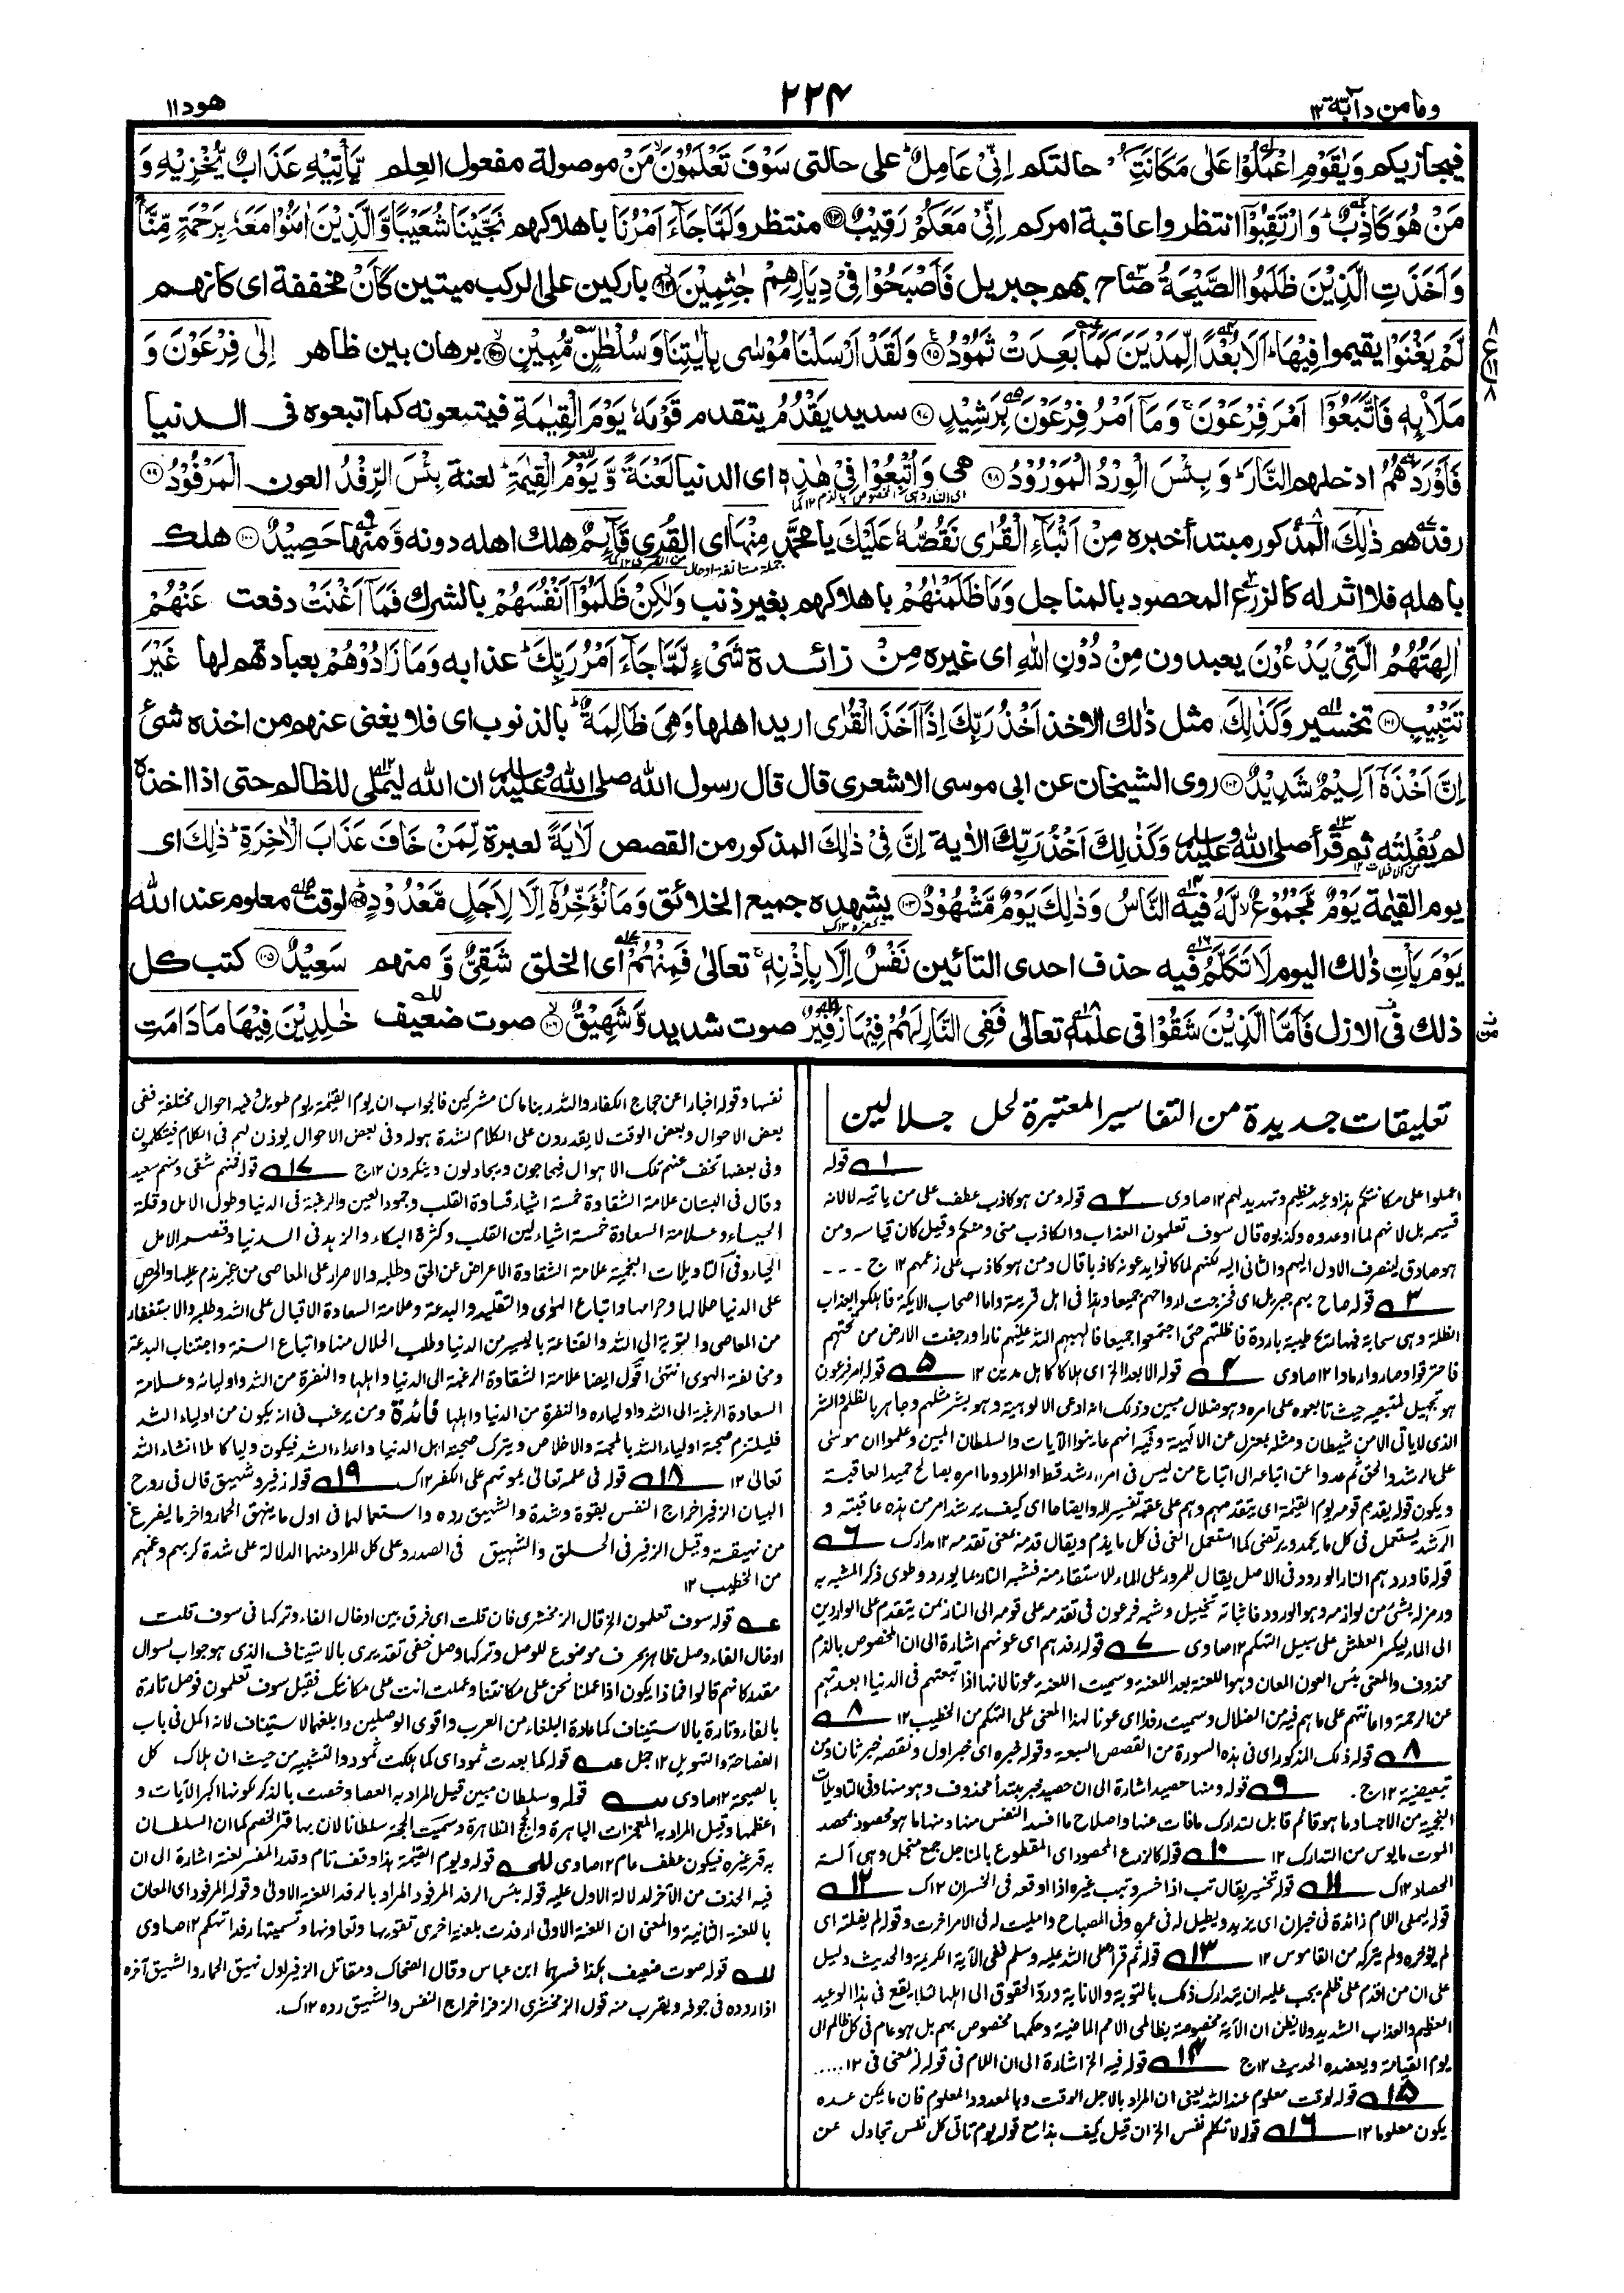 وما من دآبة ١٢
٢٢٤
هود ١١
فيجازيكم وَيٰقَوْمِ اعْمَلُوْا عَلٰى مَكَانَتِكُمْ حالتكم اِنِّىْ عَامِلٌ على حالتى سَوْفَ تَعْلَمُوْنَ مَنْ موصولة مفعول العلم يَّاْتِيْهِ عَذَابٌ يُّخْزِيْهِ وَ
مَنْ هُوَ كَاذِبٌ وَارْتَقِبُوْٓا انتظروا عاقبة امركم اِنِّىْ مَعَكُمْ رَقِيْبٌ ٩٣ منتظر وَلَمَّا جَآءَ اَمْرُنَا باهلاكهم نَجَّيْنَا شُعَيْبًا وَّالَّذِيْنَ اٰمَنُوْا مَعَهٗ بِرَحْمَةٍ مِّنَّا
وَاَخَذَتِ الَّذِيْنَ ظَلَمُوا الصَّيْحَةُ صاح بهم جبريل فَاَصْبَحُوْا فِىْ دِيَارِهِمْ جٰثِمِيْنَ ٩٤ باركين على الركب ميتين كَاَنْ مخففة اى كانهم
لَّمْ يَغْنَوْا يقيموا فِيْهَا اَلَا بُعْدًا لِّمَدْيَنَ كَمَا بَعِدَتْ ثَمُوْدُ ٩٥ وَلَقَدْ اَرْسَلْنَا مُوْسٰى بِاٰيٰتِنَا وَسُلْطٰنٍ مُّبِيْنٍ ٩٦ برهان بين ظاهر اِلٰى فِرْعَوْنَ وَ
مَلَا۟ئِهٖ فَاتَّبَعُوْٓا اَمْرَ فِرْعَوْنَ وَمَآ اَمْرُ فِرْعَوْنَ بِرَشِيْدٍ ٩٧ سديد يَقْدُمُ يتقدم قَوْمَهٗ يَوْمَ الْقِيٰمَةِ فيتبعونه كما اتبعوه فى الدنيا
فَاَوْرَدَهُمُ ادخلهم النَّارَ وَبِئْسَ الْوِرْدُ الْمَوْرُوْدُ ٩٨ هى وَاُتْبِعُوْا فِىْ هٰذِهٖ اى الدنيا لَعْنَةً وَّيَوْمَ الْقِيٰمَةِ لعنة بِئْسَ الرِّفْدُ العون الْمَرْفُوْدُ ٩٩
رفدهم ذٰلِكَ المذكور مبتدأ خبره مِنْ اَنْۢبَآءِ الْقُرٰى نَقُصُّهٗ عَلَيْكَ يا محمد مِنْهَا اى القرى قَآئِمٌ هلك اهله دونه وَّ منها حَصِيْدٌ ١٠٠ هلك
باهله فلا اثر له كالزرع المحصود بالمناجل وَمَا ظَلَمْنٰهُمْ باهلاكهم بغير ذنب وَلٰكِنْ ظَلَمُوْٓا اَنْفُسَهُمْ بالشرك فَمَآ اَغْنَتْ دفعت عَنْهُمْ
اٰلِهَتُهُمُ الَّتِىْ يَدْعُوْنَ يعبدون مِنْ دُوْنِ اللّٰهِ اى غيره مِنْ زائدة شَىْءٍ لَّمَّا جَآءَ اَمْرُ رَبِّكَ عذابه وَمَا زَادُوْهُمْ بعبادتهم لها غَيْرَ
تَتْبِيْبٍ ١٠١ تخسير وَكَذٰلِكَ مثل ذلك الاخذ اَخْذُ رَبِّكَ اِذَآ اَخَذَ الْقُرٰى اريد اهلها وَهِىَ ظَالِمَةٌ بالذنوب اى فلا يغنى عنهم من اخذه شئ
اِنَّ اَخْذَهٗٓ اَلِيْمٌ شَدِيْدٌ ١٠٢ روى الشيخان عن ابى موسى الاشعرى قال قال رسول الله صلى الله عليه وسلم ان الله ليملى للظالم حتى اذا اخذه
لم يفلته ثم قرأ صلى الله عليه وسلم وَكَذٰلِكَ اَخْذُ رَبِّكَ الاٰية اِنَّ فِىْ ذٰلِكَ المذكور من القصص لَاٰيَةً لعبرة لِّمَنْ خَافَ عَذَابَ الْاٰخِرَةِ ذٰلِكَ اى
يوم القيٰمة يَوْمٌ مَّجْمُوْعٌ لَّهُ فيه النَّاسُ وَذٰلِكَ يَوْمٌ مَّشْهُوْدٌ ١٠٣ يشهده جميع الخلائق وَمَا نُؤَخِّرُهٗٓ اِلَّا لِاَجَلٍ مَّعْدُوْدٍ ١٠٤ لوقت معلوم عند الله
يَوْمَ يَاْتِ ذلك اليوم لَا تَكَلَّمُ فيه حذف احدى التائين نَفْسٌ اِلَّا بِاِذْنِهٖ تعالى فَمِنْهُمْ اى الخلق شَقِىٌّ وَّ منهم سَعِيْدٌ ١٠٥ كتب كل
ذلك فى الازل فَاَمَّا الَّذِيْنَ شَقُوْا فى علمه تعالى فَفِى النَّارِ لَهُمْ فِيْهَا زَفِيْرٌ صوت شديد وَّشَهِيْقٌ ١٠٦ صوت ضعيف خٰلِدِيْنَ فِيْهَا مَا دَامَتِ
تعليقات جديدة من التفاسير المعتبرة لحل جلالين
١ قوله
اعملوا على مكانتكم هذا وعيد عظيم وتهديد لهم ١٢ صاوى ٢ قوله ومن هو كاذب عطف على من ياتيه لا لانه
قسيمه بل لانهم لما اوعدوه وكذبوه قال سوف تعلمون العذاب والكاذب منى ومنكم وقيل كان قياسه ومن
هو صادق لينصرف الاول اليهم والثانى اليه لكنهم لما كانوا يدعونه كاذبا قال ومن هو كاذب على زعمهم ١٢ ج
٣ قوله صاح بهم جبريل اى فخرجت ارواحهم جميعا وهذا فى اهل قريته واما اصحاب الايكة فاهلكوا بعذاب
الظلة وهى سحابة فيها ريح طيبة باردة فاظلتهم حتى اجتمعوا جميعا فالهبهم الله عليهم نارا ورجفت الارض من تحتهم
فاحترقوا وصاروا رمادا ١٢ صاوى ٤ قوله الا بعدا الخ اى هلاكا كاهل مدين ١٢ ٥ قوله امر فرعون
هو تجهيل لمتبعيه حيث تابعوه على امره وهو ضلال مبين وذلك انه ادعى الالوهية وهو بشر مثلهم وجاهر بالظلم والشر
الذى لا ياتى الا من شيطان ومثله بمعزل عن الالهية وفيه انهم عاينوا الآيات والسلطان المبين وعلموا ان موسى
على الرشد والحق ثم عدوا عن اتباعه الى اتباع من ليس فى امره رشد قط او المراد وما امره بصالح حميد العاقبة
ويكون قوله يقدم قومه يوم القيٰمة اى يتقدمهم وهم على عقبه تفسير له وايضاحا اى كيف يرشد امر من هذه عاقبته و
الرشد يستعمل فى كل ما يحمد ويرتضى كما استعمل الغى فى كل ما يذم ويقال قدمه بمعنى تقدمه ١٢ مدارك ٦
قوله فاوردهم النار الورود فى الاصل يقال للمرور على الماء للاستقاء منه فشبه النار بما يورد وطوى ذكر المشبه به
ورمز له بشئ من لوازمه وهو الورود فاثباته تخييل وشبه فرعون فى تقدمه على قومه الى النار بمن يتقدم على الواردين
الى الماء ليكسر العطش على سبيل التهكم ١٢ صاوى ٧ قوله رفدهم اى عونهم اشارة الى ان المخصوص بالذم
محذوف والمعنى بئس العون المعان وهو اللعنة بعد اللعنة وسميت اللعنة عونا لانها اذا تبعتهم فى الدنيا ابعدتهم
عن الرحمة واعانتهم على ما هم فيه من الضلال وسميت رفدا اى عونا لهذا المعنى على التهكم من الخطيب ١٢ ٨
٨ قوله ذلك المذكور اى فى هذه السورة من القصص السبعة وقوله خبره اى خبر اول ونقصه خبر ثان ومن
تبعيضية ١٢ ج. ٩ قوله ومنها حصيد اشارة الى ان حصيد خبر مبتدأ محذوف وهو منها وفى التاويلات
النجمية من الاجساد ما هو قائم قابل لتدارك ما فات عنها واصلاح ما افسد النفس منها ومنها ما هو محصود بمحصد
الموت مايوس من التدارك ١٢ ١٠ قوله كالزرع المحصود اى المقطوع بالمناجل جمع منجل وهى آلة
الحصاد ١٢ ك ١١ قوله تخسير يقال تب اذا خسر وتبب غيره اذا اوقعه فى الخسران ١٢ ك ١٢
قوله ليملى اللام زائدة فى خبر ان اى يزيد ويطيل له فى عمره وفى المصباح وامليت له فى الامر اخرت وقوله لم يفلته اى
لم يؤخره ولم يتركه من القاموس ١٢ ١٣ قوله ثم قرأ صلى الله عليه وسلم ففى الآية الكريمة والحديث دليل
على ان من اقدم على ظلم يجب عليه ان يتدارك ذلك بالتوبة والانابة ورد الحقوق الى اهلها لئلا يقع فى هذا الوعيد
العظيم والعذاب الشديد ولا يظن ان الآية مخصوصة بظالمى الامم الماضية وحكمها مخصوص بهم بل هو عام فى كل ظالم الى
يوم القيامة ويعضده الحديث ١٢ ج ١٤ قوله فيه الخ اشارة الى ان اللام فى قوله له بمعنى فى ١٢ ....
١٥ قوله لوقت معلوم عند الله يعنى ان المراد بالاجل الوقت وبالمعدود المعلوم فان ما يمكن عده
يكون معلوما ١٢ ١٦ قوله لا تكلم نفس الخ ان قيل كيف هذا مع قوله يوم تاتى كل نفس تجادل عن
نفسها وقوله اخبارا عن حجاج الكفار والله ربنا ما كنا مشركين فالجواب ان يوم القيٰمة يوم طويل وفيه احوال مختلفة ففى
بعض الاحوال وبعض الوقت لا يقدرون على الكلام لشدة هوله وفى بعض الاحوال يوذن لهم فى الكلام فيتكلمون
وفى بعضها تخف عنهم تلك الاهوال فيحاجون ويجادلون وينكرون ١٢ ج ١٧ قوله فمنهم شقى ومنهم سعيد
وقال فى البستان علامة الشقاوة خمسة اشياء قساوة القلب وجمود العين والرغبة فى الدنيا وطول الامل وقلة
الحياء وعلامة السعادة خمسة اشياء لين القلب وكثرة البكاء والزهد فى الدنيا وقصر الامل
الحياء وفى التاويلات النجمية علامة الشقاوة الاعراض عن الحق وطلبه والاصرار على المعاصى من غير ندم عليها والحرص
على الدنيا حلالها وحرامها واتباع الهوى والتقليد والبدعة وعلامة السعادة الاقبال على الله وطلبه والاستغفار
من المعاصى والتوبة الى الله والقناعة باليسير من الدنيا وطلب الحلال منها واتباع السنة واجتناب البدعة
ومخالفة الهوى انتهى اقول ايضا علامة الشقاوة الرغبة الى الدنيا واهلها والنفرة من الله واوليائه وعلامة
السعادة الرغبة الى الله واولياءه والنفرة من الدنيا واهلها فائدة ومن يرغب فى انه يكون من اولياء الله
فليلتزم صحبة اولياء الله بالمحبة والاخلاص ويترك صحبة اهل الدنيا واعداء الله فيكون وليا كاملا انشاء الله
تعالى ١٢ ١٨ قوله فى علمه تعالى بموتهم على الكفر ١٢ ك ١٩ قوله زفير وشهيق قال فى روح
البيان الزفير اخراج النفس بقوة وشدة والشهيق رده واستعمالهما فى اول ما ينهق الحمار وآخر ما يفرغ
من نهيقه وقيل الزفير فى الحلق والشهيق فى الصدور وعلى كل المراد منهما الدلالة على شدة كربهم وغمهم
من الخطيب ١٢
عه قوله سوف تعلمون الخ قال الزمخشرى فان قلت اى فرق بين ادخال الفاء وتركها فى سوف قلت
ادخال الفاء وصل ظاهر بحرف موضوع للوصل وتركها وصل خفى تقديرى بالاستيناف الذى هو جواب لسوال
مقدر كانهم قالوا فما ذا يكون اذا عملنا نحن على مكانتنا وعملت انت على مكانتك فقيل سوف تعلمون فوصل تارة
بالفاء وتارة بالاستيناف كما عادة البلغاء من العرب واقوى الوصلين وابلغهما الاستيناف لانه اكمل فى باب
الفصاحة والتهويل ١٢ جمل عه قوله كما بعدت ثمود اى كما هلكت ثمود والتشبيه من حيث ان هلاك كل
بالصيحة ١٢ صاوى سه قوله وسلطان مبين قيل المراد به العصا وخصت بالذكر لكونها اكبر الآيات و
اعظمها وقيل المراد به المعجزات الباهرة والحجج الظاهرة وسميت الحجة سلطانا لان بها قهر الخصم كما ان السلطان
به قهر غيره فيكون عطف عام ١٢ صاوى للعه قوله ويوم القيٰمة هذا وقف تام وقدر المفسر لعنة اشارة الى ان
فيه الحذف من الآخر لدلالة الاول عليه قوله بئس الرفد المرفود المراد بالرفد اللعنة الاولى وقوله المرفود اى المعان
باللعنة الثانية والمعنى ان اللعنة الاولى ارفدت بلعنة اخرى تقويها وتعاونها وتسميتها رفدا تهكم ١٢ صاوى
لله قوله صوت ضعيف هكذا فسرهما ابن عباس وقال الضحاك ومقاتل الزفير اول نهيق الحمار والشهيق آخره
اذا رده فى جوفه ويقرب منه قول الزمخشرى الزفر اخراج النفس والشهيق رده ١٢ ك.